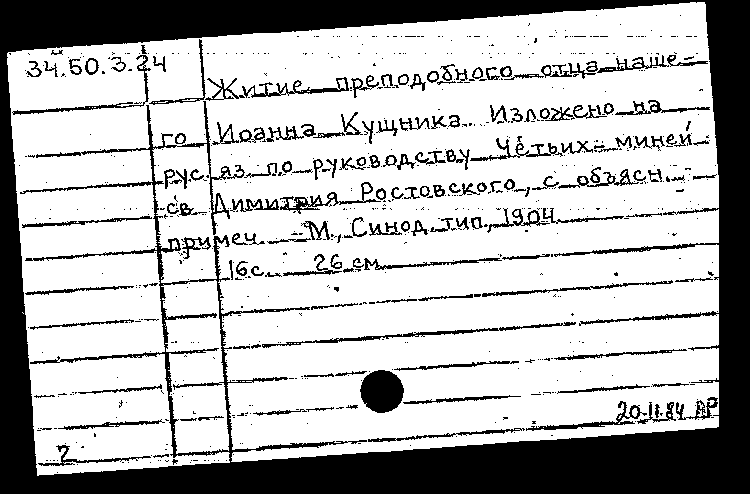 34.50.3.24
Житие преподобного отца наше-
го Иоанна Кущника. Изложено на
рус. яз. по руководству Четьих-миней
св. Димитрия Ростовского, с объясн.
примеч. - М., Синод. тип., 1904.
16 с. 26 см.
20.11.84 АР
2